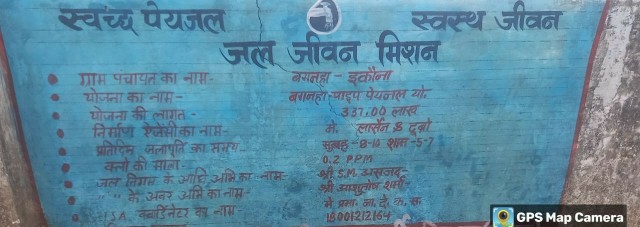 स्वच्छ पेयजल स्वस्थ जीवन
जल जीवन मिशन
ग्राम पंचायत का नाम- बगनहा - इकौना
योजना का नाम- बगनहा पाइप पेयजल यो.
योजना की लागत- 337.00 लाख
निर्माण ऐजेंसी का नाम- मे. लार्सन & टुब्रो
प्रतिदिन जलापूर्ति का समय- सुबह-8-10 शाम-5-7
क्लो की मात्रा- 0.2 P.P.M
जल निगम के अभि का नाम- श्री S.M. असजद
" " के अवर अभि का नाम- श्री आशुतोष शर्मा
I.S.A. क्वार्डिनेटर का नाम मे
18001212164
GPS Map Camera